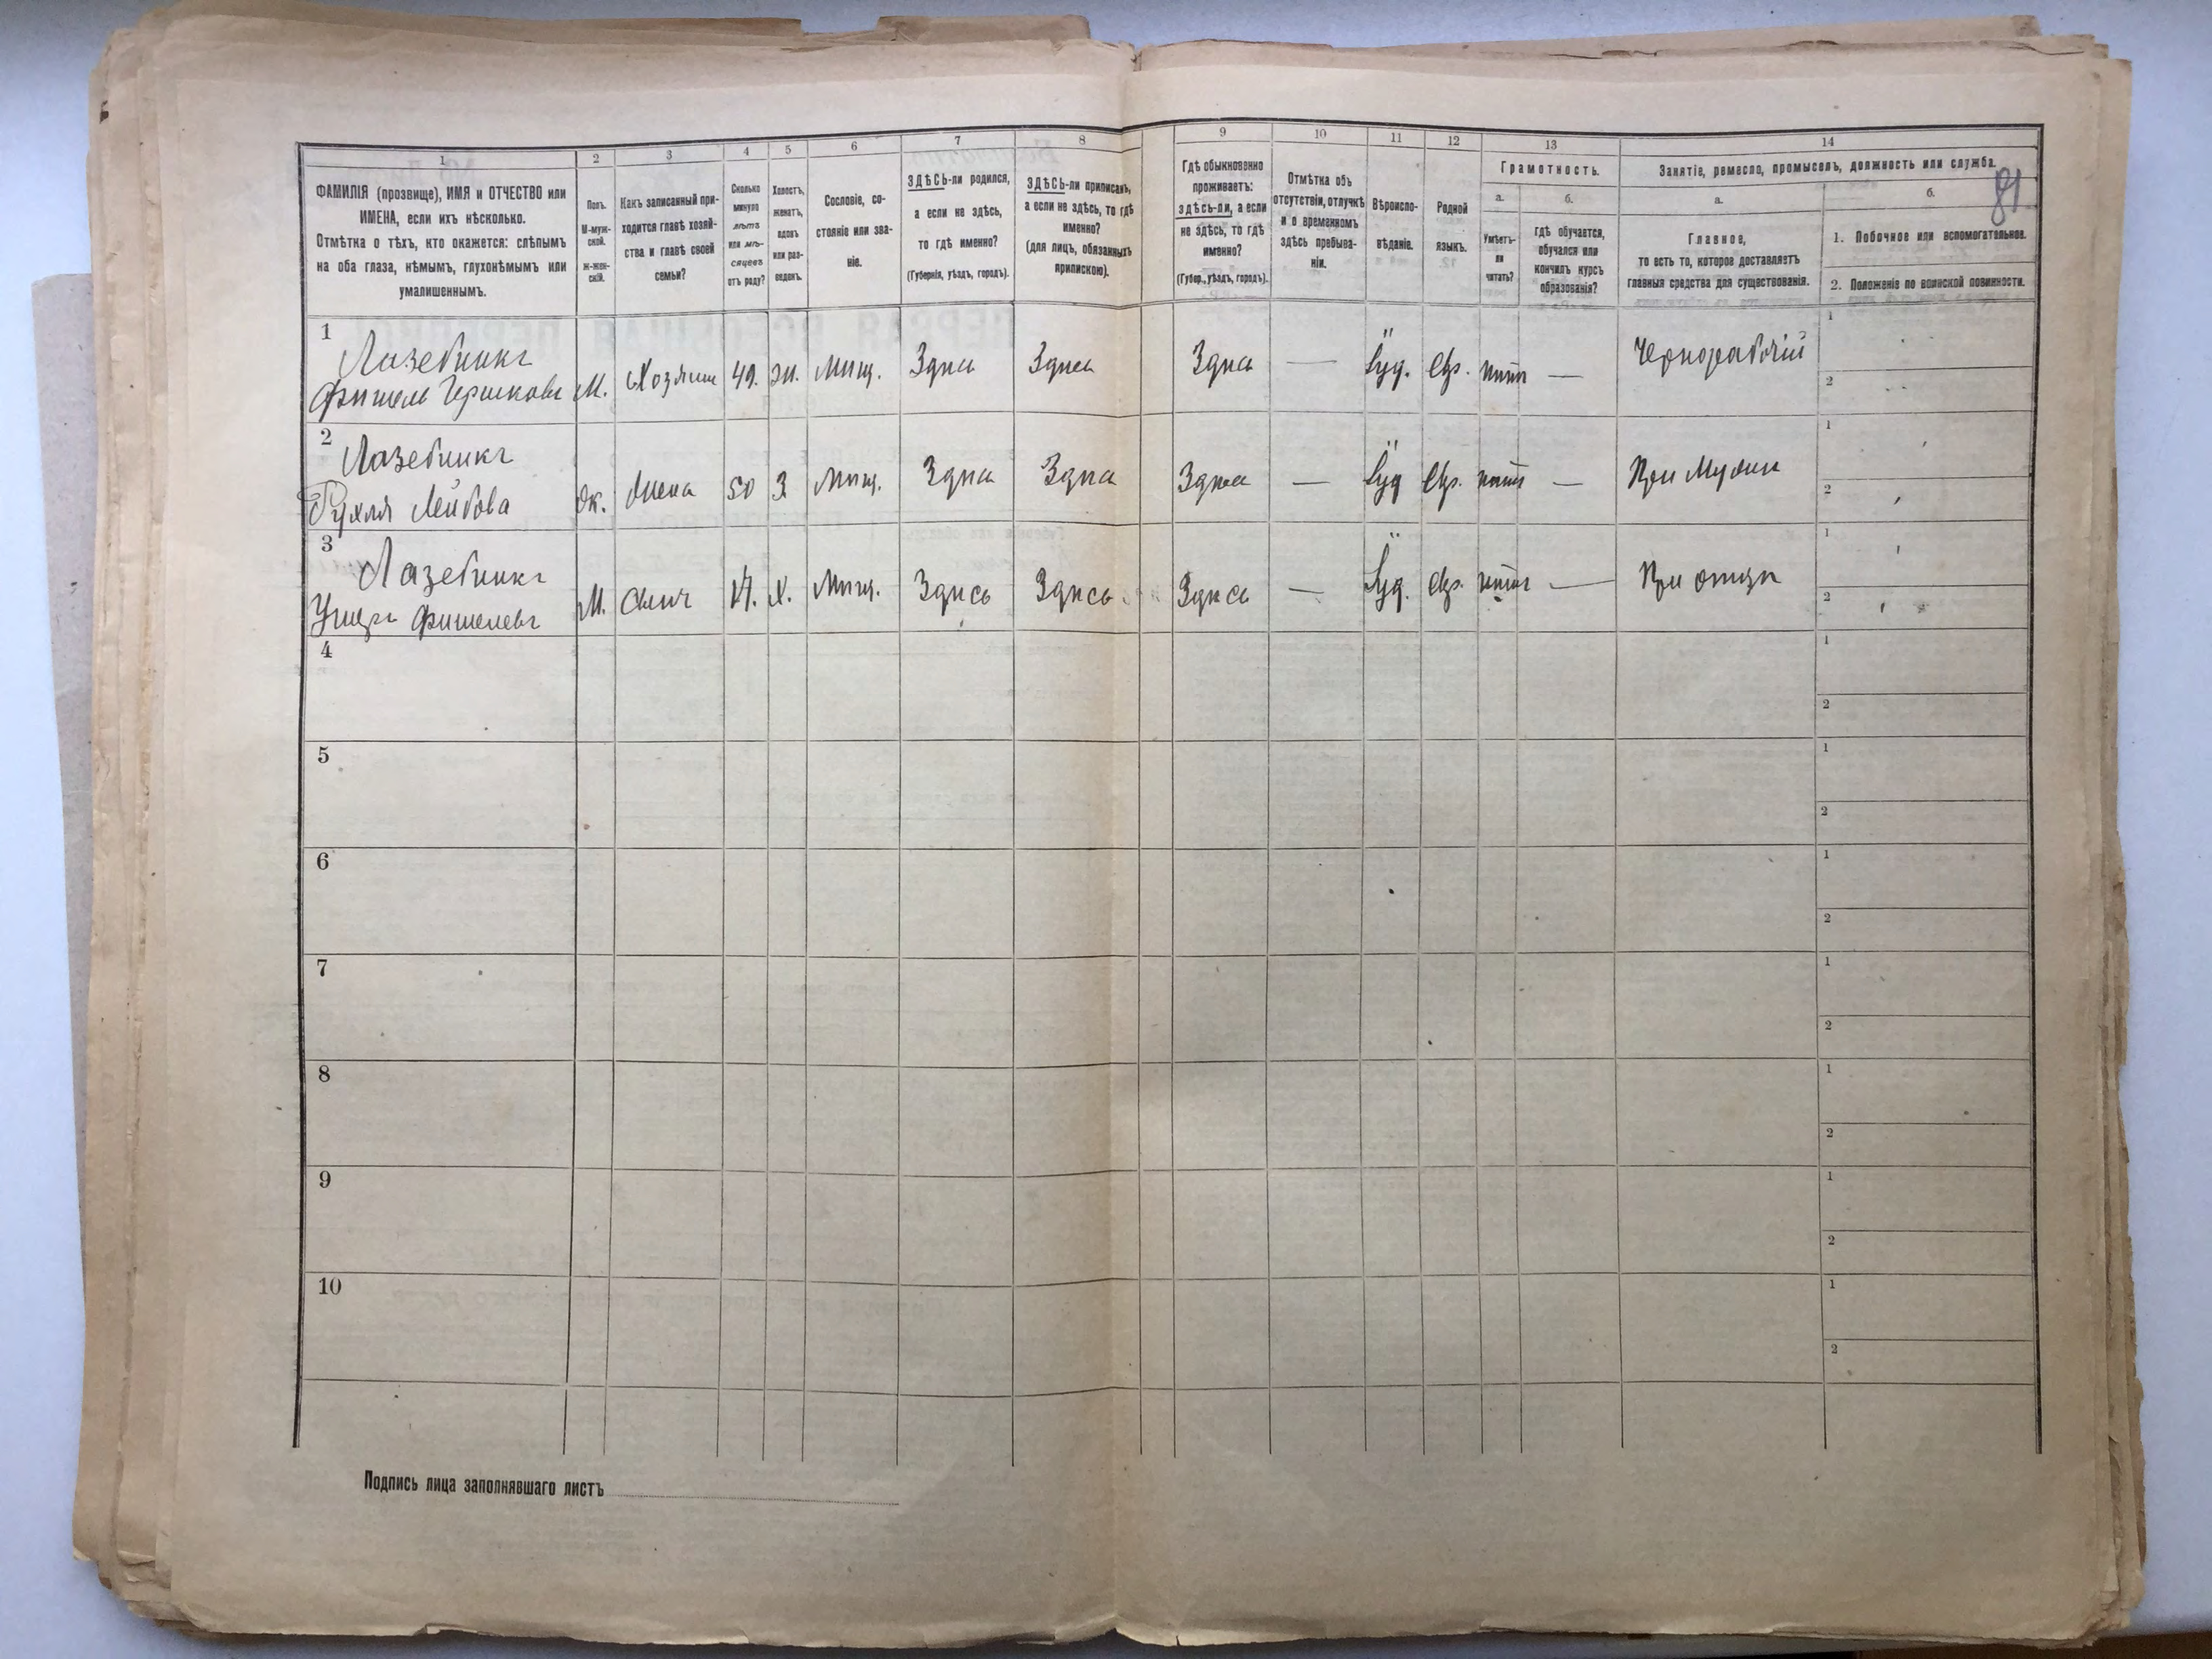 1
2
3
4
5
6
7
8
9
10
11
12
13
14
ФАМИЛІЯ (прозвище), ИМЯ и ОТЧЕСТВО или
ИМЕНА, если ихъ нѣсколько.
Отмѣтка о тѣхъ, кто окажется: слѣпымъ
на оба глаза, нѣмымъ, глухонѣмымъ или
умалишеннымъ.
Полъ.
М-муж-
ской.
ж-жен-
скій.
Какъ записанный при-
ходится главѣ хозяй-
ства и главѣ своей
семьи?
Сколько
минуло
лѣтъ
или мѣ-
сяцевъ
отъ роду?
Холостъ,
женатъ,
вдовъ
или раз-
веденъ.
Сословіе, со-
стояніе или зва-
ніе.
ЗДѢСЬ-ли родился,
а если не здѣсь,
то гдѣ именно?
(Губернія, уѣздъ, городъ).
ЗДѢСЬ-ли приписанъ,
а если не здѣсь, то гдѣ
именно?
(для лицъ, обязанныхъ
припискою).
Гдѣ обыкновенно
проживаетъ:
здѣсь-ли, а если
не здѣсь, то гдѣ
именно?
(Губер., уѣздъ, городъ).
Отмѣтка объ
отсутствіи, отлучкѣ
и о временномъ
здѣсь пребыва-
ніи.
Вѣроиспо-
вѣданіе.
Родной
языкъ.
Грамотность.
а.
Умѣетъ-
ли
читать?
б.
гдѣ обучается,
обучался или
кончилъ курсъ
образованія?
Занятіе, ремесло, промыселъ, должность или служба.
81
а.
Главное,
то есть то, которое доставляетъ
главныя средства для существованія.
б.
1. Побочное или вспомогательное.
2. Положеніе по воинской повинности.
1
Лазебникъ
Фишель Гершковъ М. Хозяинъ 49. жн. мѣщ. Здѣсь Здѣсь Здѣсь — Іуд. Евр. нѣтъ — Чернорабочій
1
2
2
Лазебникъ
Рухля Лейбова ж. жена 50 З. мѣщ. Здѣсь Здѣсь Здѣсь — Іуд Евр. нѣтъ — При мужѣ
1
2
3
Лазебникъ
Ушеръ Фишелевъ М. Сынъ 17. Х. мѣщ. Здѣсь Здѣсь Здѣсь — Іуд. Евр. нѣтъ — При отцѣ
1
2
4
1
2
5
1
2
6
1
2
7
1
2
8
1
2
9
1
2
10
1
2
Подпись лица заполнявшаго листъ